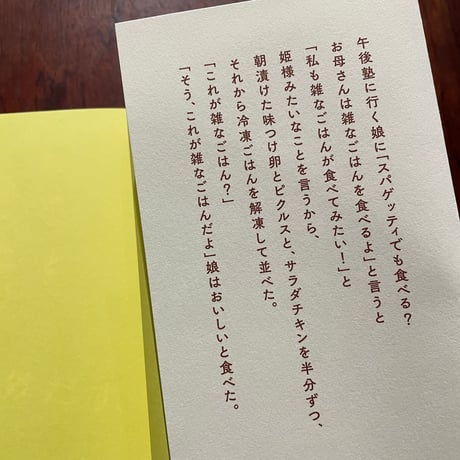 午後塾に行く娘に「スパゲッティでも食べる?
お母さんは雑なごはんを食べるよ」と言うと
「私も雑なごはんが食べてみたい!」と
姫様みたいなことを言うから、
朝漬けた味つけ卵とピクルスと、サラダチキンを半分ずつ、
それから冷凍ごはんを解凍して並べた。
「これが雑なごはん?」
「そう、これが雑なごはんだよ」娘はおいしいと食べた。